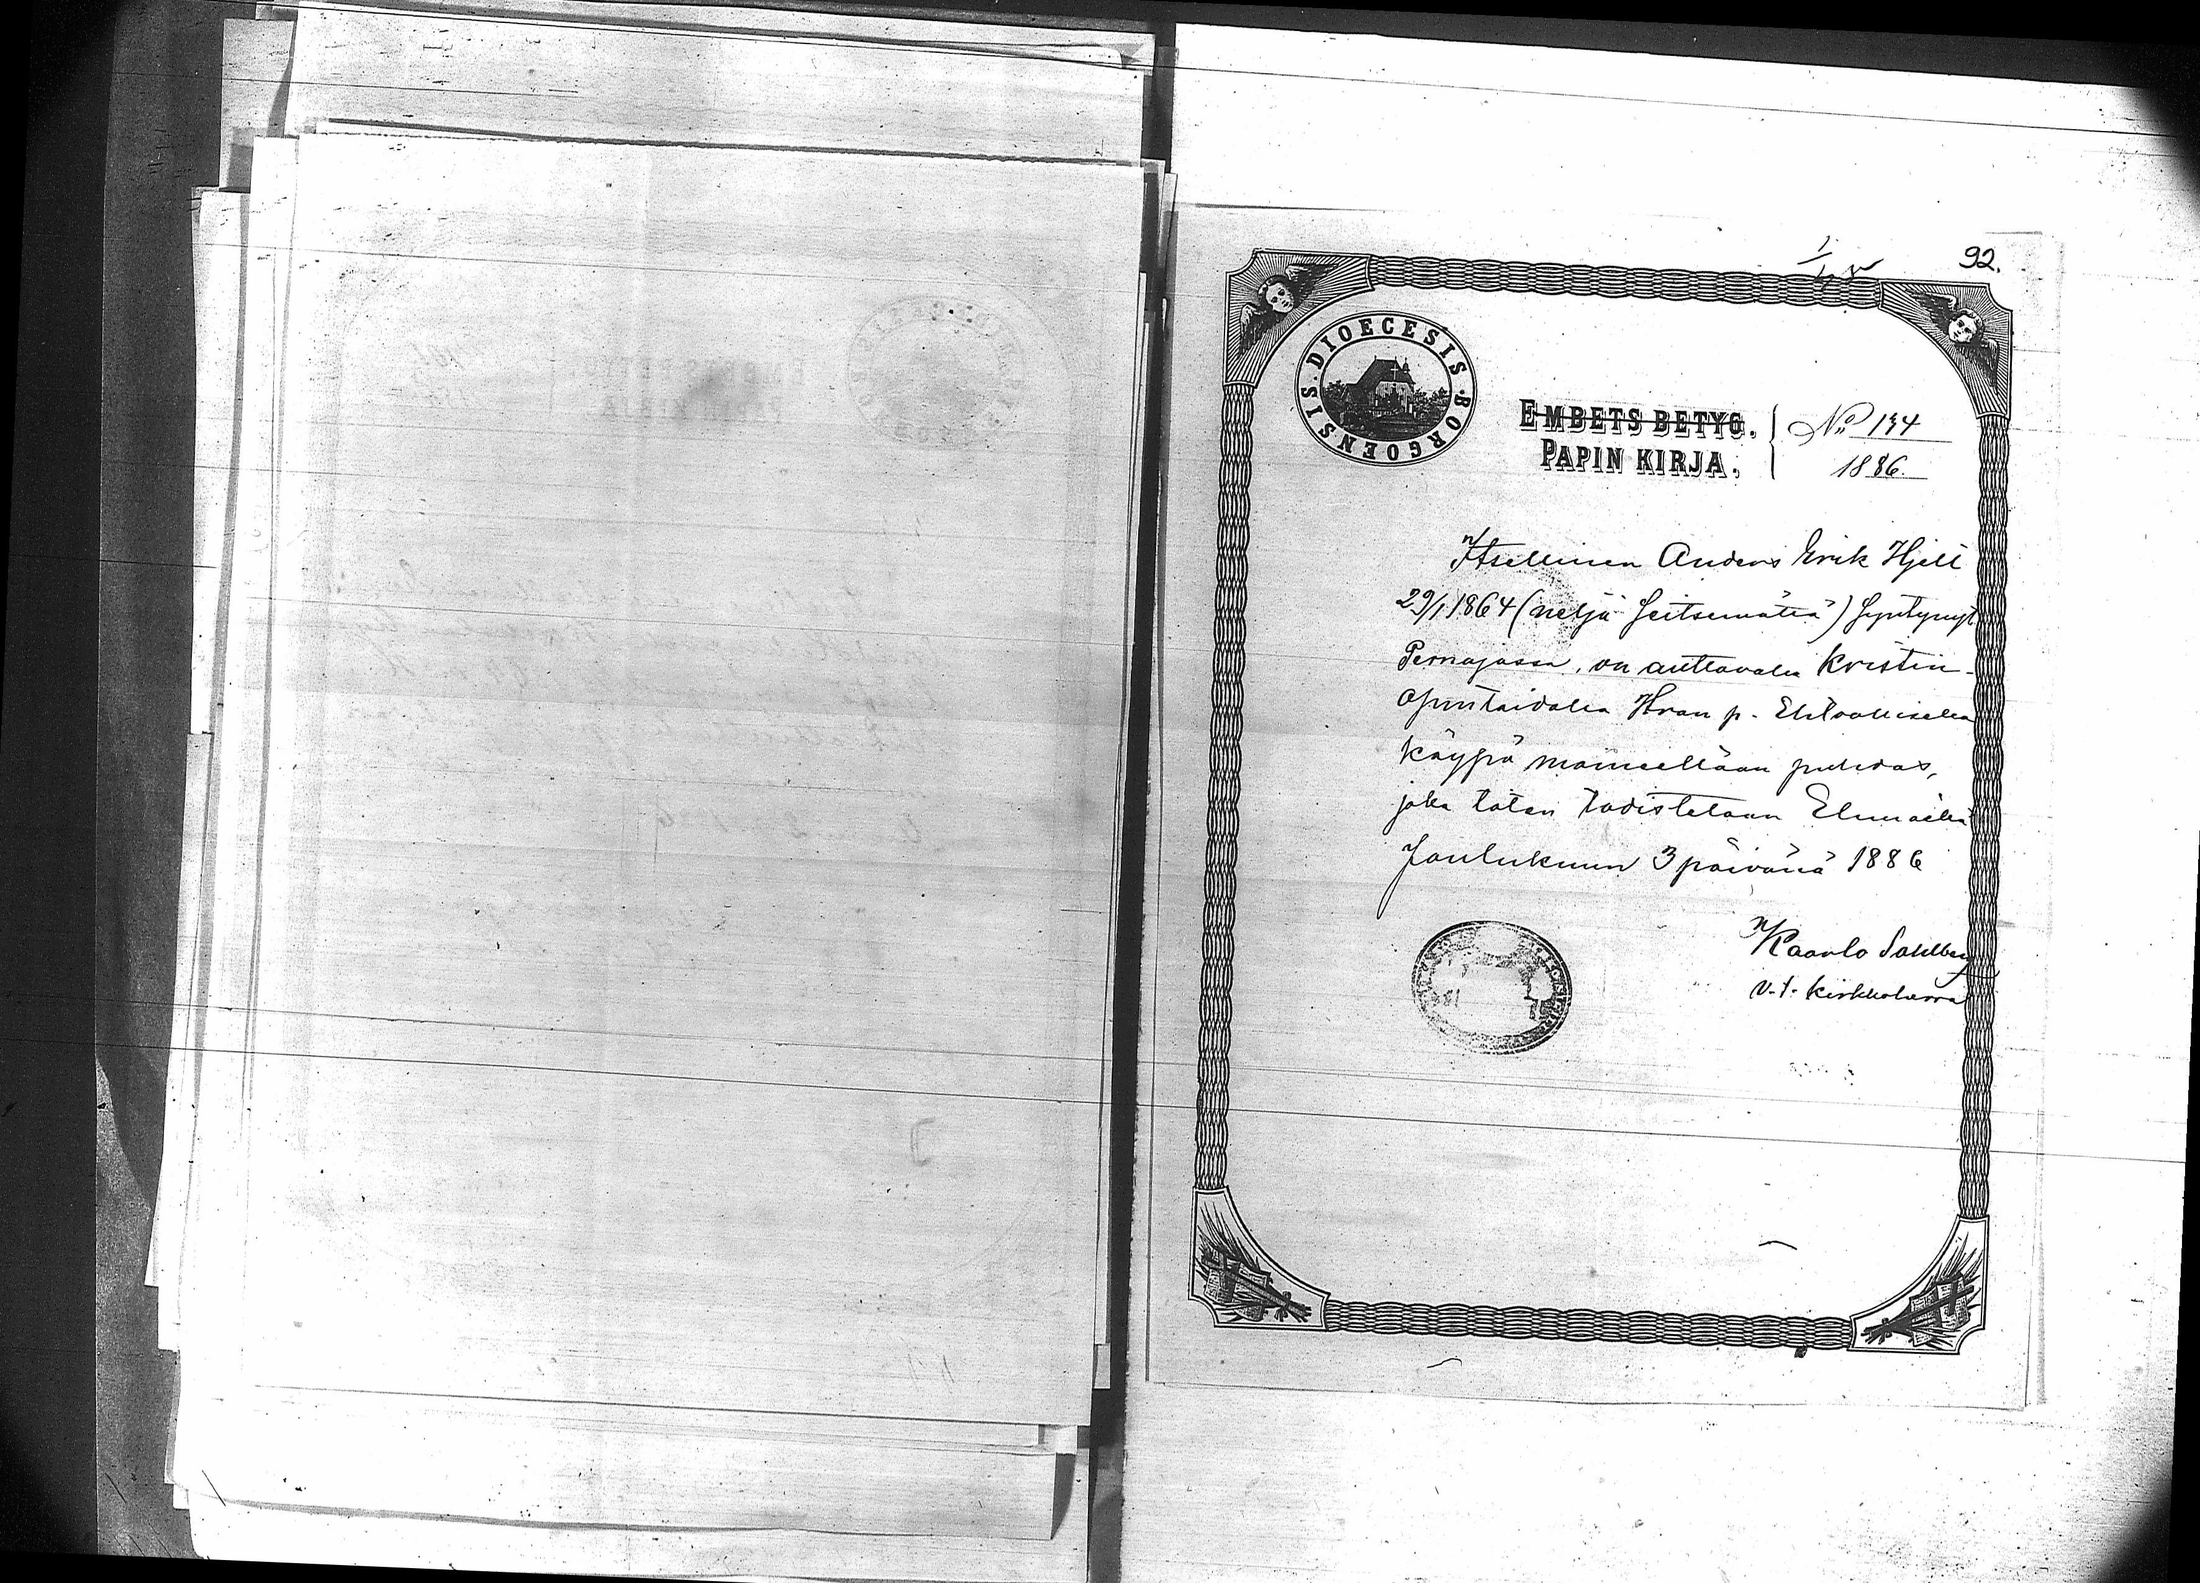 92.
DIOECESIS BORGOENSIS
EMBETS BETYG.
PAPIN KIRJA.
No 134
1886.
Itsellinen Anders Erik Hjelt
29/1 1864 (neljä seitsemättä) syntynyt
Pernajassa, on auttavalla kristin-
opintaidolla Herran p. Ehtoollisella
käypä maineeltaan puhdas,
joka täten todistetaan Elimäellä
Joulukuun 3 päivänä 1886
Kaarlo Sahlberg
v.t. kirkkoherra